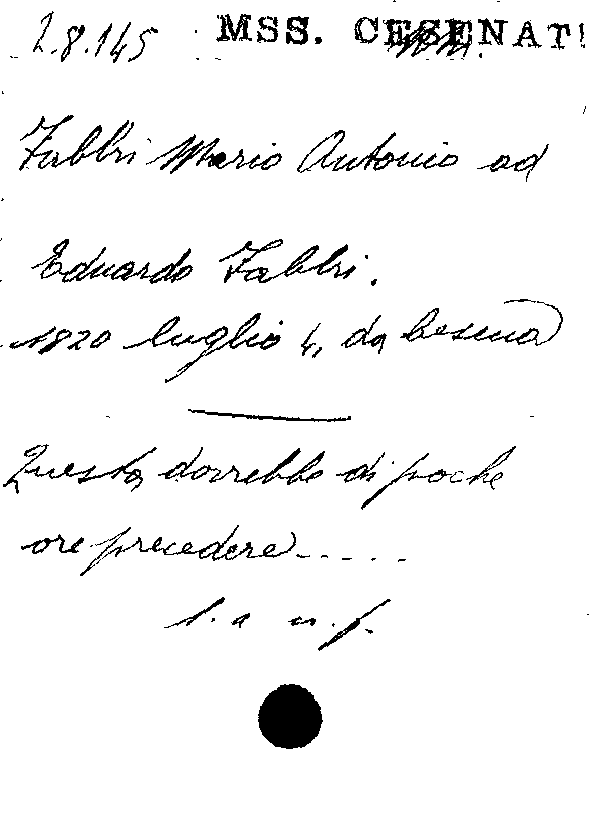 2.8.145 MSS. CESENATI
Fabbri Mario Antonio ad
Eduardo Fabbri.
1820 luglio 4, da Cesena
Questa dovrebbe di poche
ore precedere.....